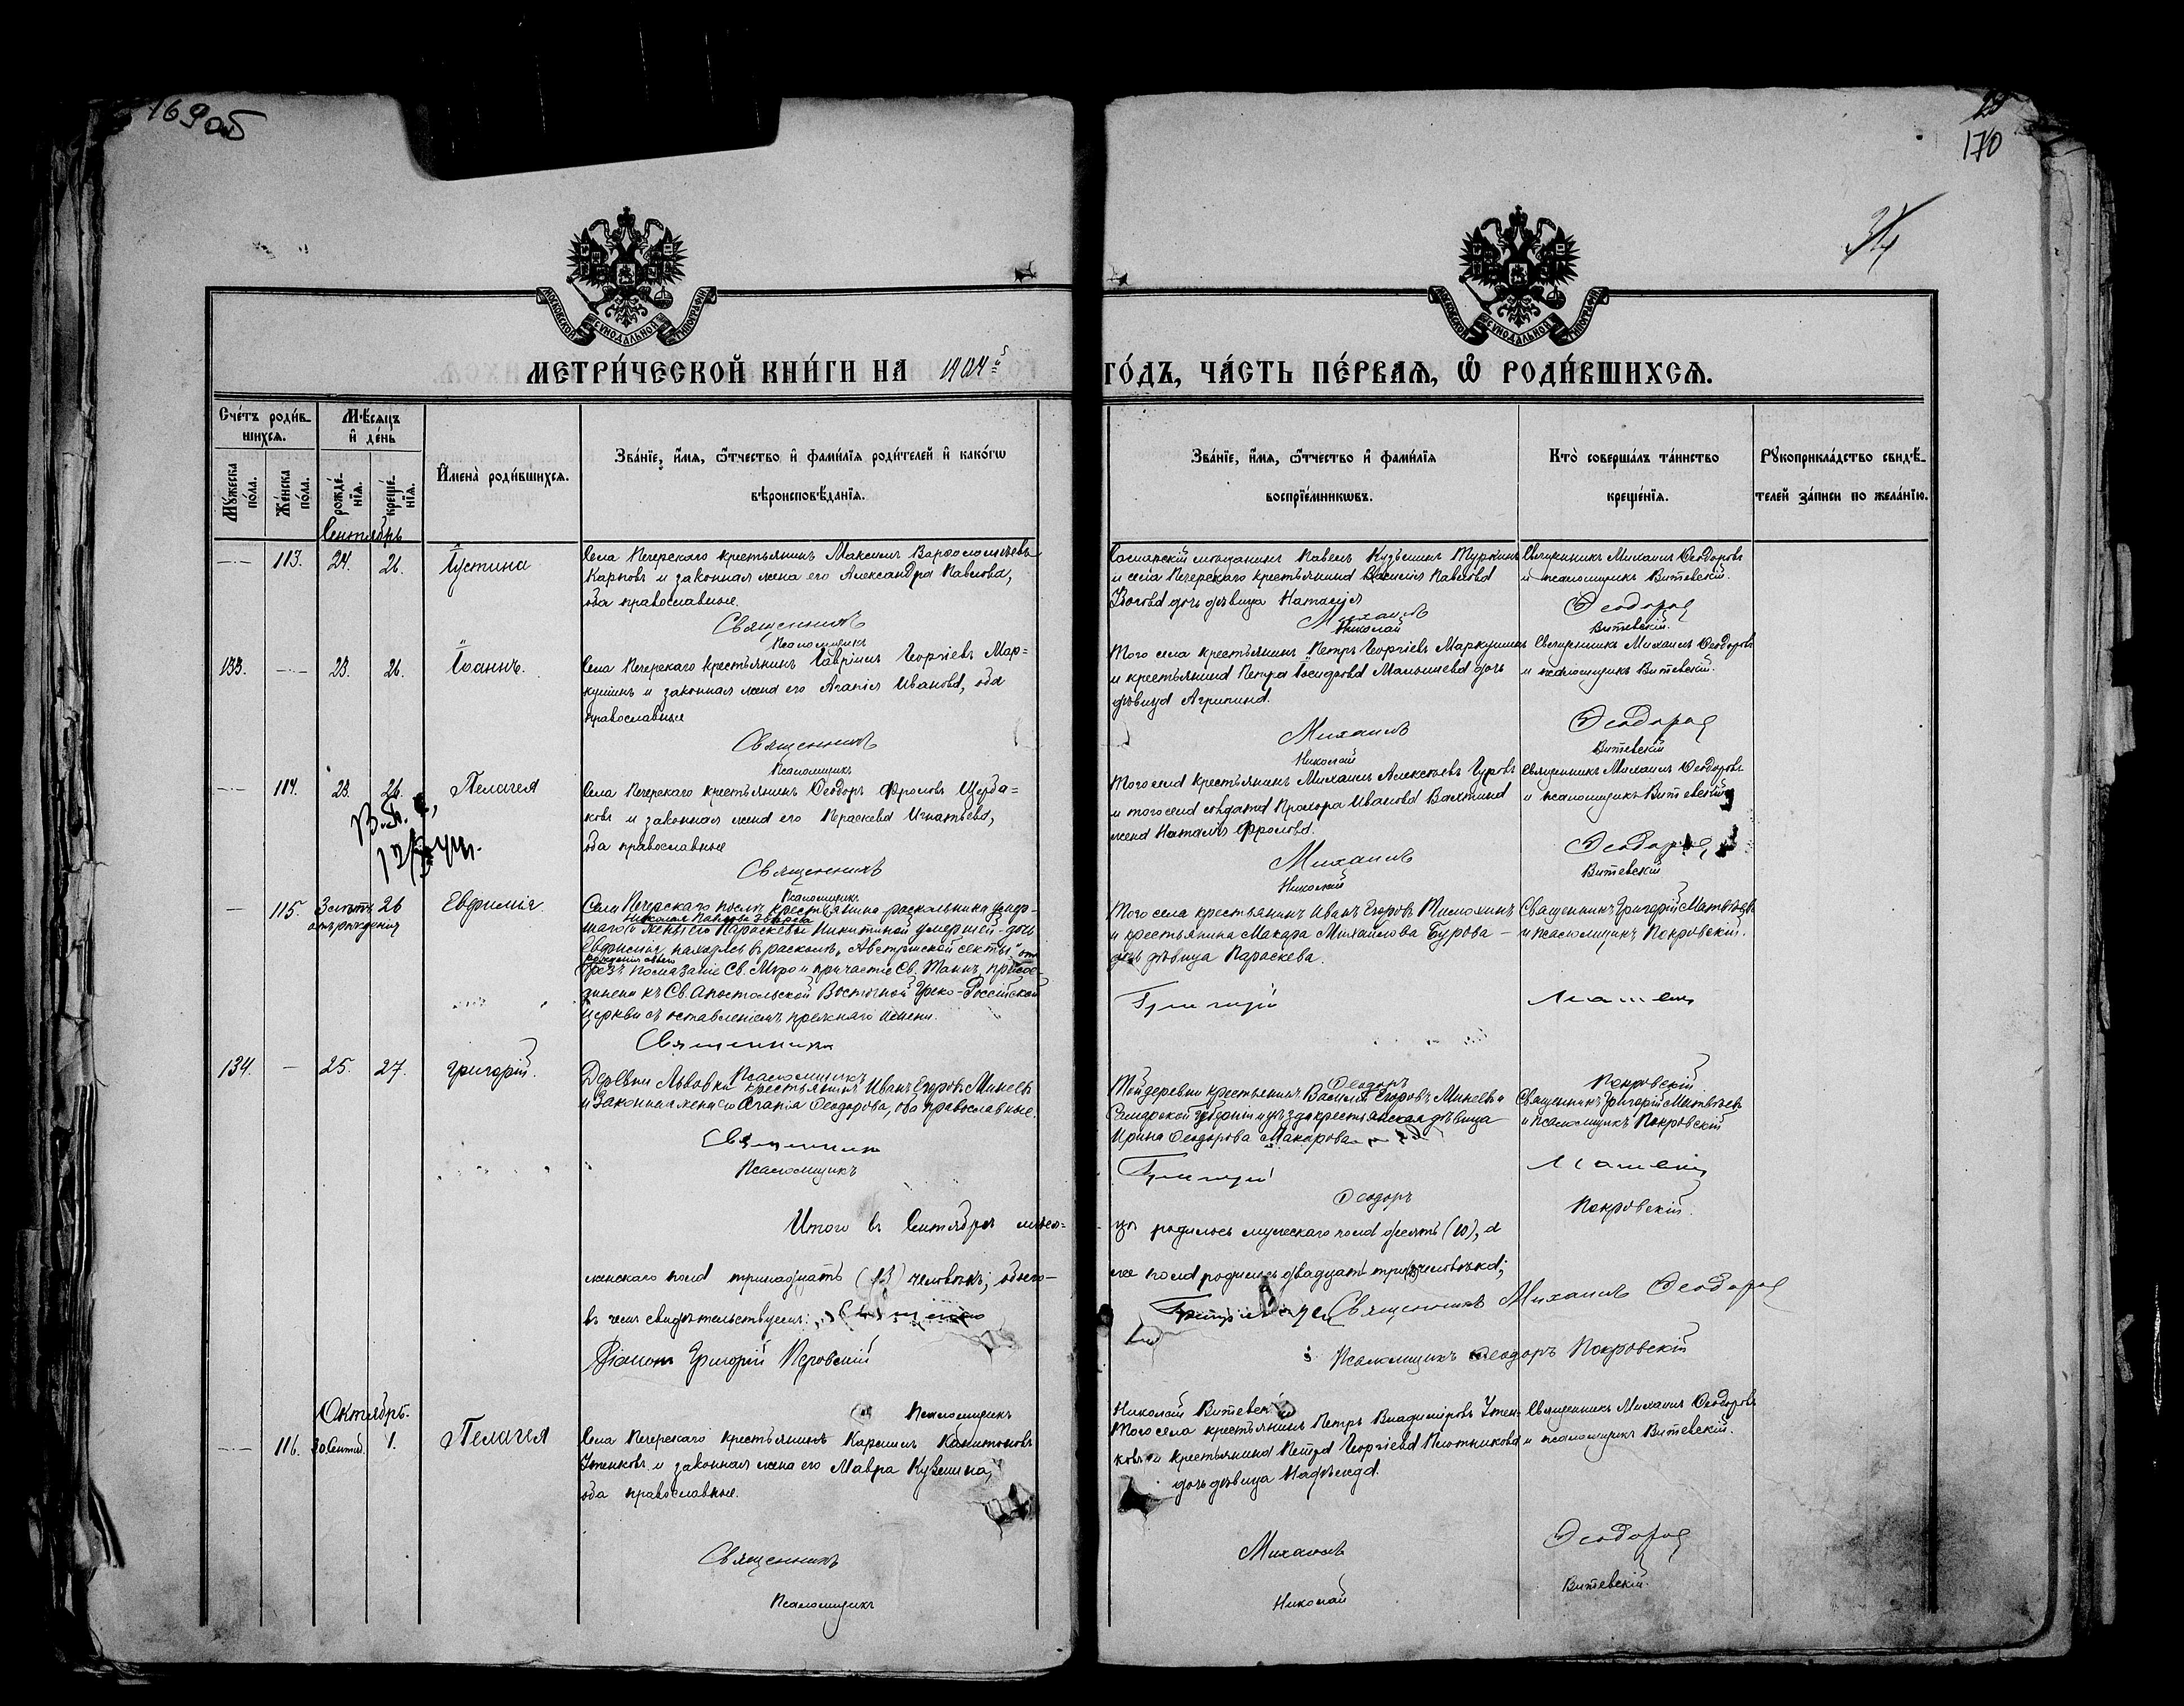 169 об
170
МОСКОВСКОЙ СѴНОДАЛЬНОЙ ТИПОГРАФІИ
МОСКОВСКОЙ СѴНОДАЛЬНОЙ ТИПОГРАФІИ
МЕТРИ́ЧЕСКОЙ КНИ́ГИ НА
ГО́ДЪ, ЧА́СТЬ ПЕ́РВАѦ, Ѡ҆ РОДИ́ВШИХСѦ.
Сче́тъ роди́в-
шихсѧ.
Мꙋ́жеска по́ла.
Же́нска по́ла.
Мѣ́сѧцъ
и҆ де́нь
рожде́-
нїѧ.
креще́-
нїѧ.
И҆мена̀ роди́вшихсѧ.
Зва́нїе, и҆́мѧ, ѻ҆́тчество и҆ фами́лїѧ роди́телей и҆ како́гѡ
вѣроисповѣ́данїѧ.
Зва́нїе, и҆́мѧ, ѻ҆́тчество и҆ фами́лїѧ
воспрїе́мникѡвъ.
Кто̀ соверша́лъ та́инство
креще́нїѧ.
Рꙋкоприкла́дство свидѣ́-
телей за́писи по жела́нїю.
Сентябрь
113. 24. 26. Іустина
Села Печерскаго крестьянинъ Максимъ Варѳоломѣевъ
Карповъ и законная жена его Александра Павлова,
оба православные.
Священникъ
Псаломщикъ
мѣщанинъ Павелъ Кузьминъ Туркинъ
и села Печерскаго крестьянина Василія Павлова
дочь дѣвица Наталія
Михаилъ
Николай
Священникъ Михаилъ Ѳеодоровъ
и псаломщикъ Витевскій.
Ѳеодоровъ
Витевскій.
133. 23. 26. Іоаннъ.
Села Печерскаго крестьянинъ Гавріилъ Георгіевъ Мар=
кушинъ и законная жена его Агапія Иванова, оба
православные
Священникъ
Псаломщикъ
Того села крестьянинъ Петръ Георгіевъ Маркушинъ
и крестьянина Петра Іосидова Малышева дочь
дѣвица Агрипина.
Михаилъ
Николай
Священникъ Михаилъ Ѳеодоровъ
и псаломщикъ Витевскій.
Ѳеодоровъ
Витевскій
114. 23. 26. Пелагея
Села Печерскаго крестьянинъ Ѳеодоръ Фроловъ Щерба=
ковъ и законная жена его Параскева Игнатьева,
оба православные
Священникъ
Псаломщикъ
Того села крестьянинъ Михаилъ Алексѣевъ Гуровъ
и того села солдата Прохора Иванова Вахтина
жена Наталія Фролова.
Михаилъ
Николай
Священникъ Михаилъ Ѳеодоровъ
и псаломщикъ Витевскій
Ѳеодоровъ
Витевскій
115. 26 Евфимія.
отъ рожденія
Села Печерскаго крестьянина раскольника умер-
шаго Николая Павлова и жены его Параскевы Никитиной умершей – дочь
Евфимія, находясь въ расколѣ, „Австрійской секты" отъ
рожденія своего
чрезъ помазаніе Св. Мѵро и причастіе Св. Таинъ, присое-
динена къ Св. Апостольской Восточной Греко-Россійской
Церкви съ оставленіемъ прежняго имени.
Священникъ
Псаломщикъ
Того села крестьянинъ Иванъ Егоровъ
и крестьянина Макара Михайлова Бурова –
дочь дѣвица Параскева.
Григорій
Ѳеодоръ
Священникъ Григорій Матвѣевъ
и псаломщикъ Покровскій.
Матвѣевъ
Покровскій
134. – 25. 27. Григорій.
Деревни Львовки крестьянинъ Иванъ Егоровъ Минеевъ
и законная жена его Агапія Ѳеодорова, оба православные.
Священникъ
Псаломщикъ
Той деревни крестьянинъ Василій Егоровъ Минеевъ и
Самарской губерніи и уѣзда крестьянская дѣвица
Ирина Ѳеодорова Макарова
Григорій
Ѳеодоръ
Священникъ Григорій Матвѣевъ
и псаломщикъ Покровскій
Матвѣевъ
Покровскій.
Итого въ Сентябрѣ мѣся=
цѣ родилось мужескаго пола десять (10), а
женскаго пола тринадцать (13) человѣкъ; обоего
же пола родилось двадцать три человѣка;
въ чемъ свидѣтельствуемъ:
Священникъ Михаилъ Ѳеодоровъ
Діаконъ Григорій Перовскій
Псаломщикъ Ѳеодоръ Покровскій
Псаломщикъ Николай Витевскій
Октябрь.
116. 30 Сентяб. 1. Пелагея
Села Печерскаго крестьянинъ Карпъ Капитоновъ
и законная жена его Мавра Кузьмина,
оба православные.
Священникъ
Псаломщикъ
Того села крестьянинъ Петръ Владиміровъ
и крестьянина Петра Георгіева Плотникова
дочь дѣвица Надежда.
Михаилъ
Николай
Священникъ Михаилъ Ѳеодоровъ
и псаломщикъ Витевскій.
Ѳеодоровъ
Витевскій.